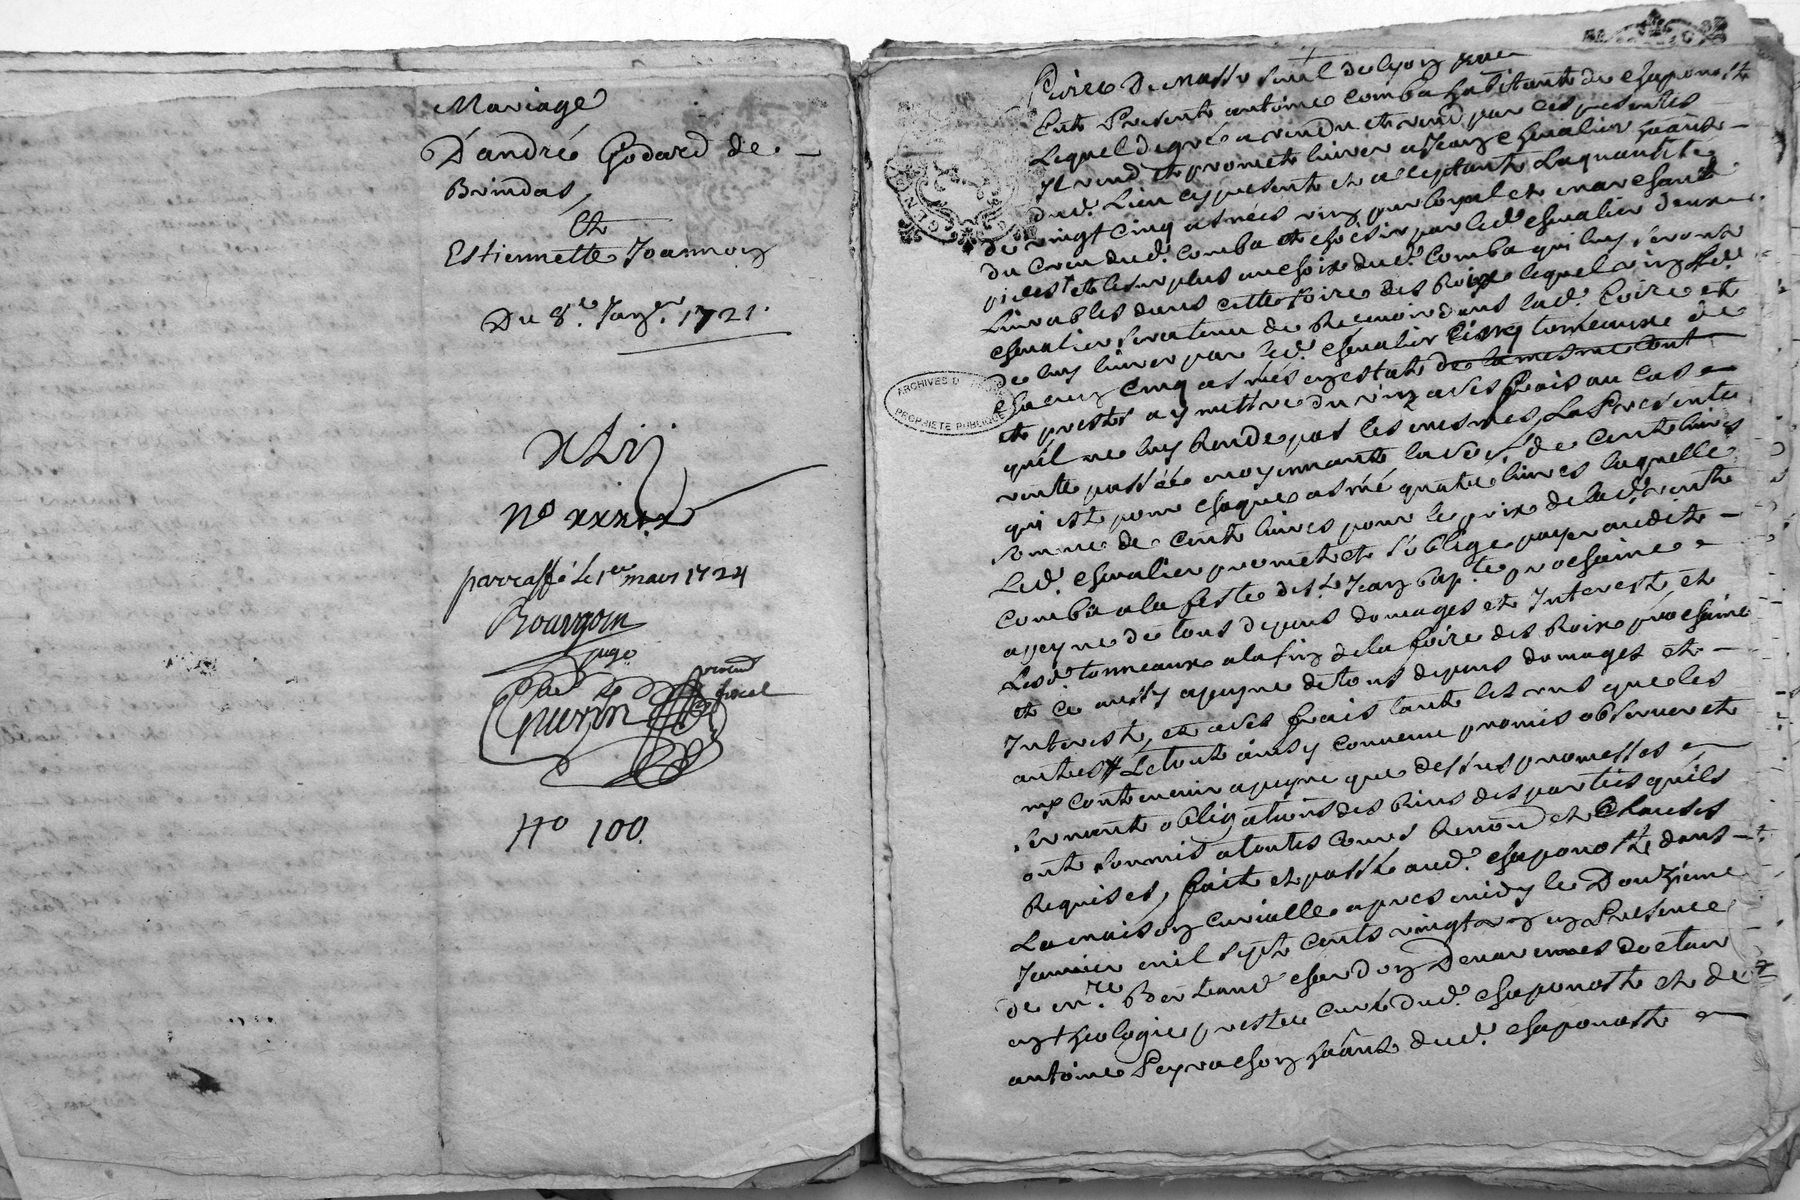 Mariage
D'andré Godard de
Brindas,
Et
Estiennette Joannon
Du 8.e Janer. 1721.
No xxxix
parraffé Le 1er mars 1724
Bourgoin
juge
Guerin
fiscal
No 100.
GEN
ARCHIVES D
PROPRIETE PUBLIQUE
de Lyon
Fut Present antoine Comba habitant de Chaponost
Lequel de gré a vendu et vend par ces presentes
et promet livrer a Jean Chevalier haânt
dud. Lieu cy present et acceptant La quantité
de vingt cinq asnées vin pur loyal et marchand
du Creu dud. Comba et choisir par led. Chevalier deux
et le surplus au choix dud. Comba qui luy seront
Livrables dans cette foire des Roix lequel vin led.
Chevalier sera tenu de Recevoir dans lad. foire et
de luy livrer par led. Chevalier cinq tonneaux de
chacun Cinq asnées en estat de la mesme cont
et prests a y mettre du vin a ses frais au cas
quil ne luy Rende pas les mesmes, La Presente
vente passée moyennant la somme de Cent livres
qui est pour chaque asnée quatre livres laquelle
somme de Cent livres pour le prix de lad. vente
Led. Chevalier promet et s'oblige payer audit
Comba a la feste de St. Jean bap.te prochaine
a peyne de tous depens domages et Interest, et
Lesd. tonneaux a la fin de la foire des Roix prochaine
et ce aussy a peyne de tous depens domages et
Interest, et a ses frais tant les uns que les
autres Le tout ainsy convenu promis observer et
ne contrevenir a peyne que dessus promesses
serment obligations des biens des parties quils
ont soumis a toutes Cours Renon et Clauses
Requises, fait et passé aud. Chaponost, dans
La maison Curialle apres midy le Douzieme
Janvier mil sept cents vingt un en Presence
de mre. Bertrand Chardon Devarennes docteur
en theologie prestre Curé dud. Chaponost et de
antoine Peyrachon haânt dud. Chaponost